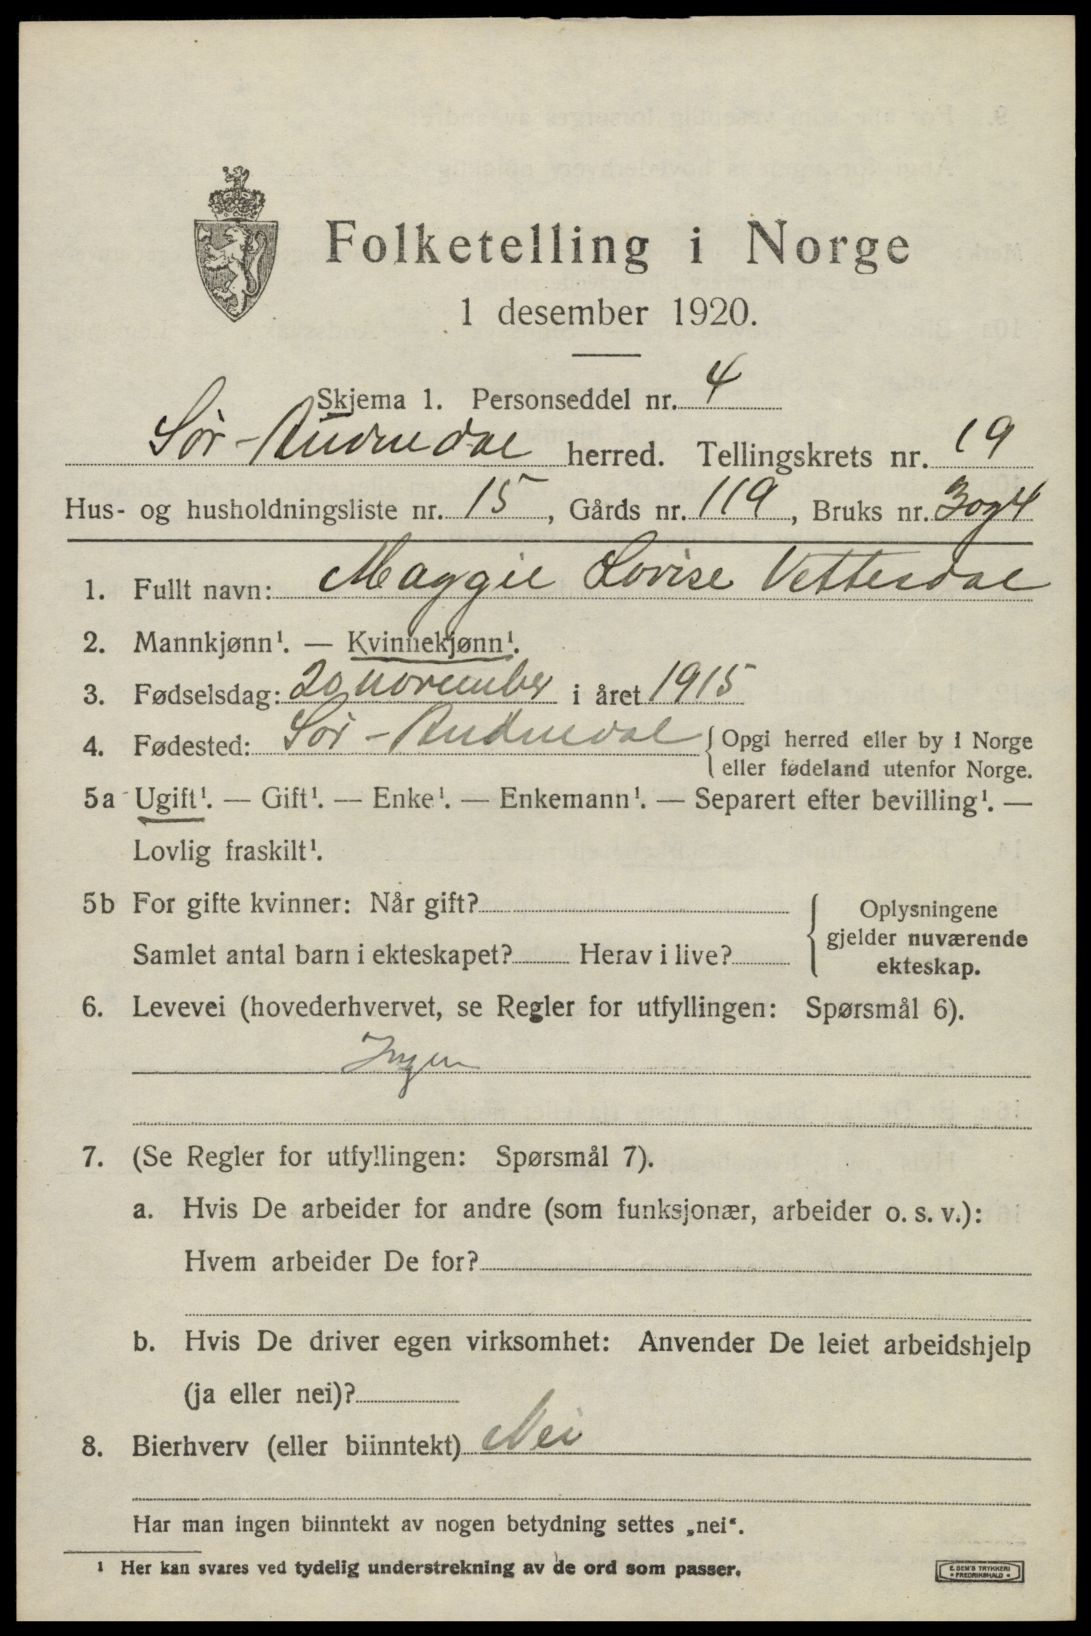 Folketelling i Norge
1 desember 1920.
Skjema 1. Personseddel nr. 4
Sør-Audnedal herred. Tellingskrets nr. 19
Hus- og husholdningsliste nr. 15, Gårds nr. 119, Bruks nr. 3 og 4
1. Fullt navn: Maggie Lovise Vettesdal
2. Mannkjønn¹. — Kvinnekjønn¹.
3. Fødselsdag: 20 november i året 1915
4. Fødested: Sør-Audnedal { Opgi herred eller by i Norge
eller fødeland utenfor Norge.
5a Ugift¹. — Gift¹. — Enke¹. — Enkemann¹. — Separert efter bevilling¹. —
Lovlig fraskilt¹.
5b For gifte kvinner: Når gift?
Samlet antal barn i ekteskapet? Herav i live?
{ Oplysningene
gjelder nuværende
ekteskap.
6. Levevei (hovederhvervet, se Regler for utfyllingen: Spørsmål 6).
Ingen
7. (Se Regler for utfyllingen: Spørsmål 7).
a. Hvis De arbeider for andre (som funksjonær, arbeider o. s. v.):
Hvem arbeider De for?
b. Hvis De driver egen virksomhet: Anvender De leiet arbeidshjelp
(ja eller nei)?
8. Bierhverv (eller biinntekt) Nei
Har man ingen biinntekt av nogen betydning settes „nei“.
¹ Her kan svares ved tydelig understrekning av de ord som passer.
E. SEM'S TRYKKERI
• FREDRIKSHALD •